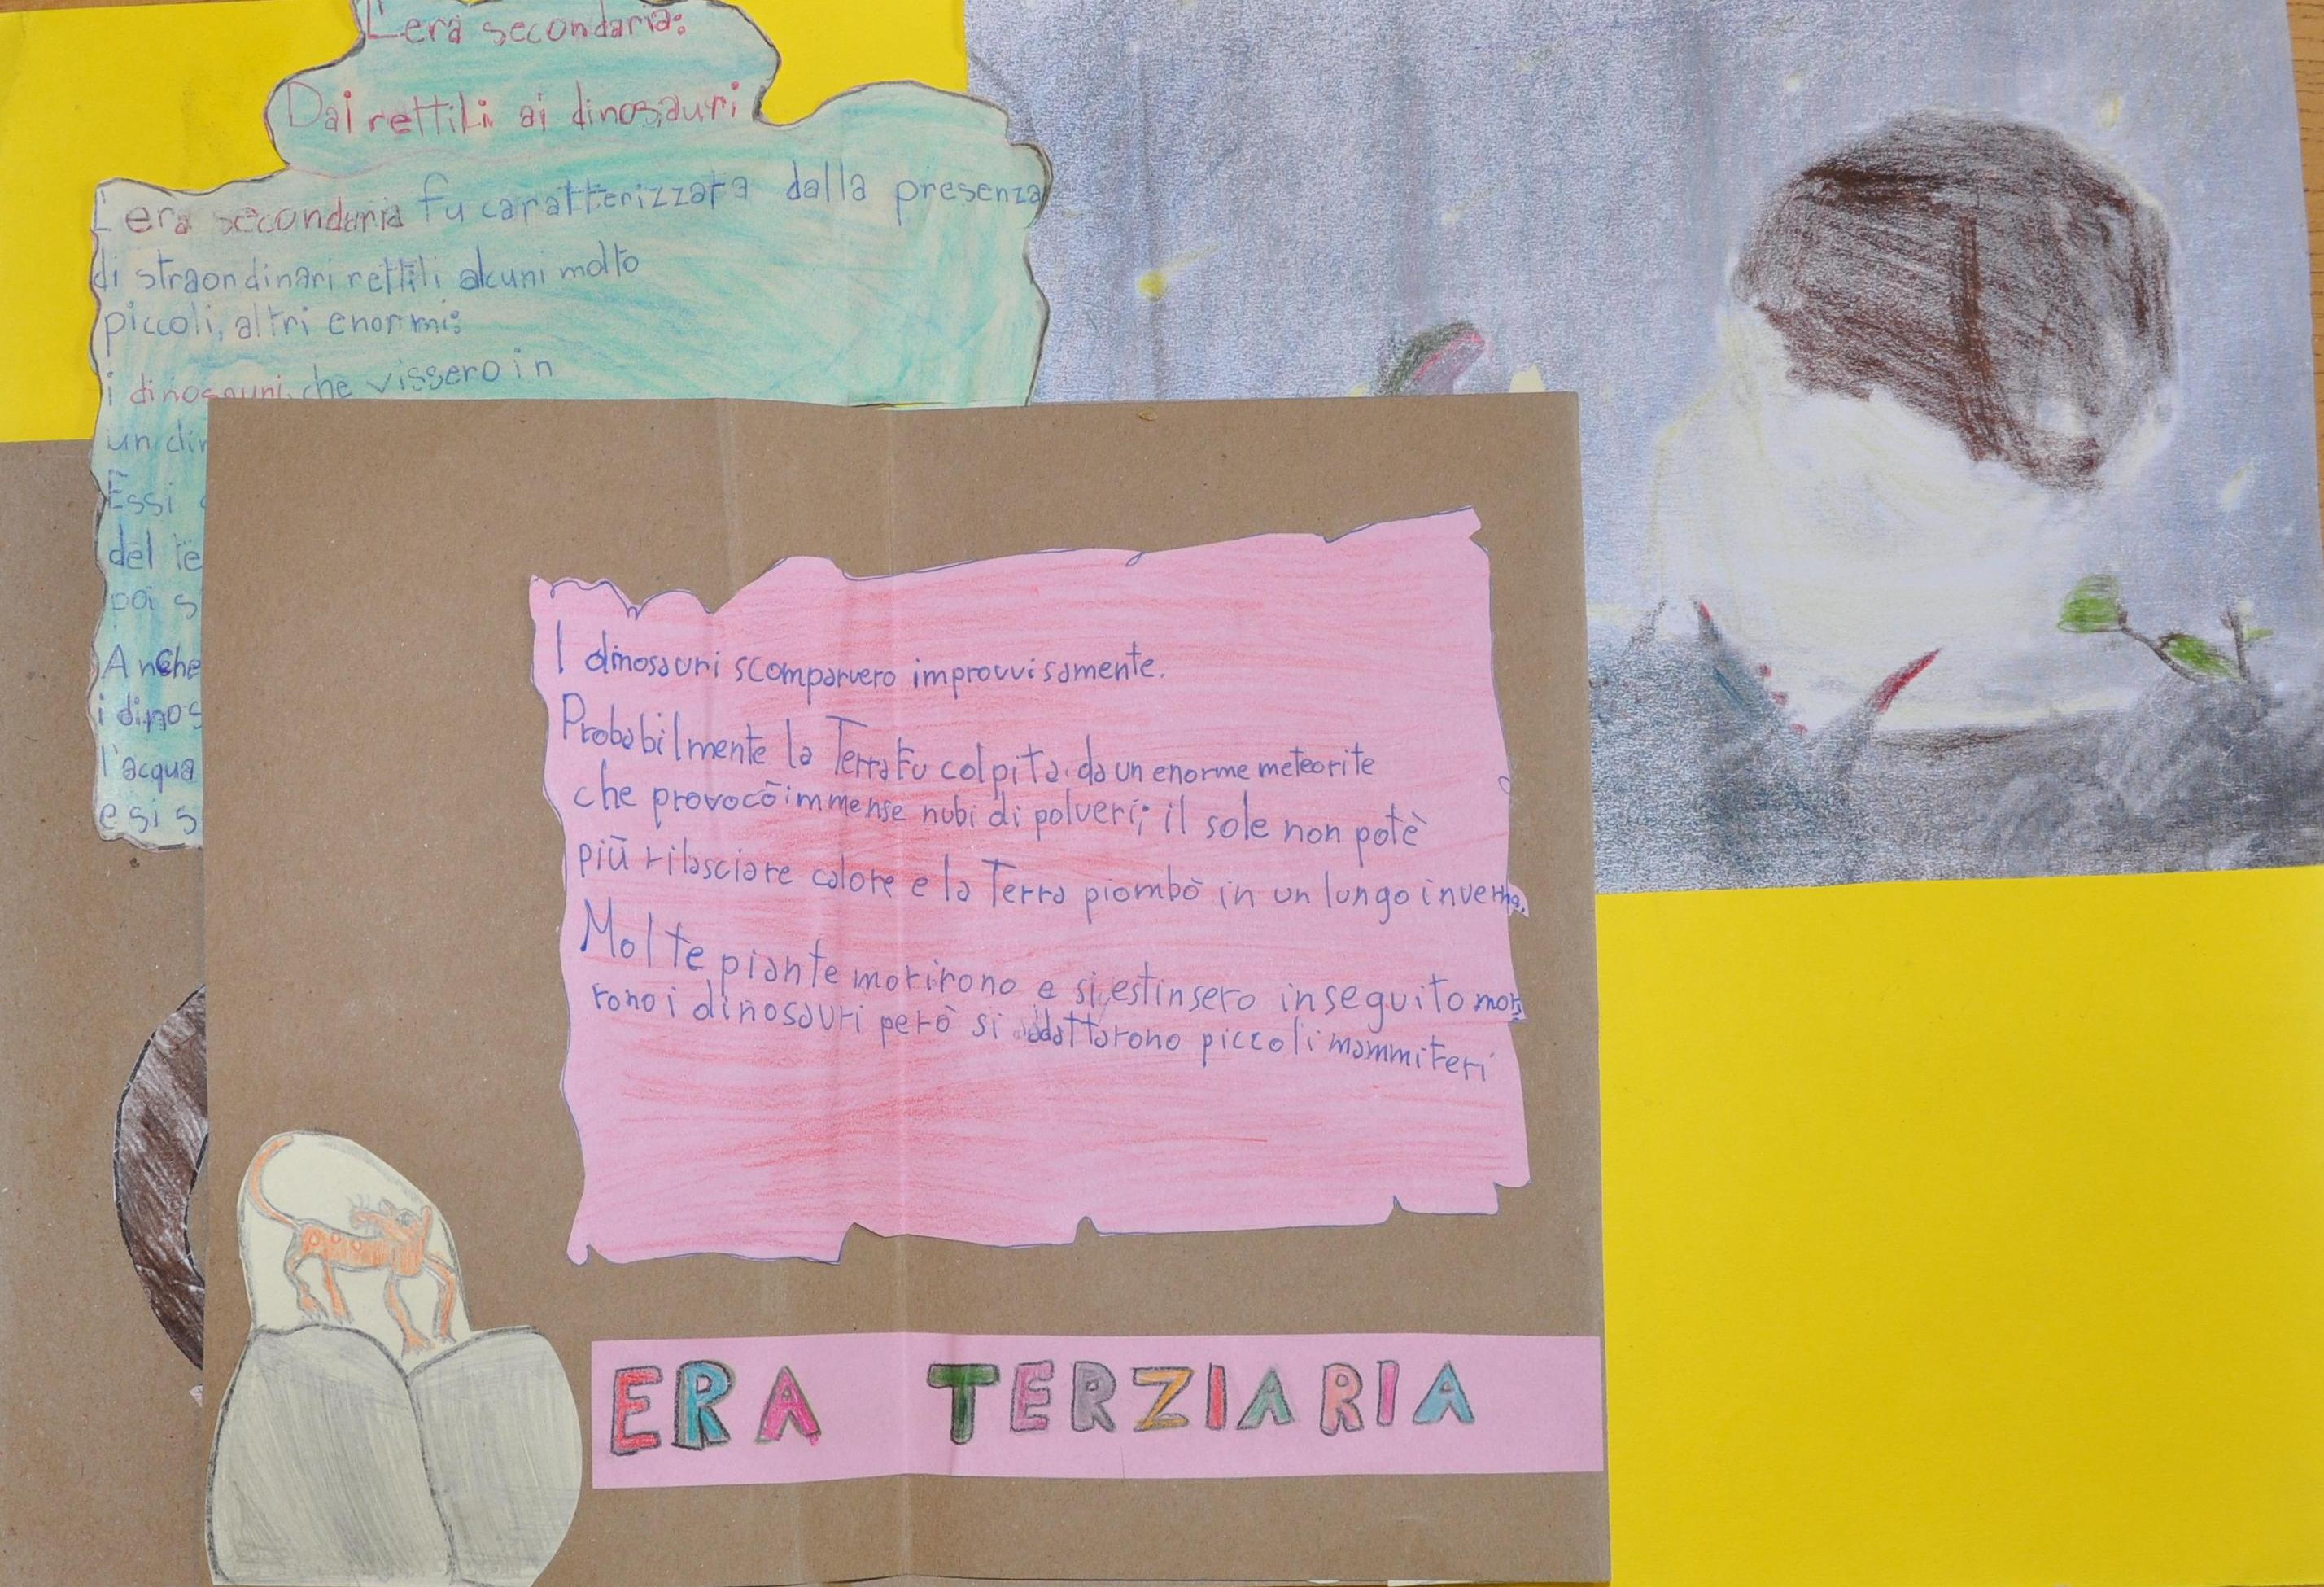 L'era secondaria:
Dai rettili ai dinosauri
L'era secondaria fu caratterizzata dalla presenza
di straordinari rettili alcuni molto
piccoli, altri enormi:
i dinosauri, che vissero in
un
Essi
del
poi
Anche
i
l'acqua
e si
I dinosauri scomparvero improvvisamente.
Probabilmente la Terra fu colpita da un enorme meteorite
che provocò immense nubi di polveri; il sole non potè
più rilasciare calore e la Terra piombò in un lungo inverno.
Molte piante morirono e si estinsero in seguito mori
rono i dinosauri però si adattarono piccoli mammiferi
ERA TERZIARIA